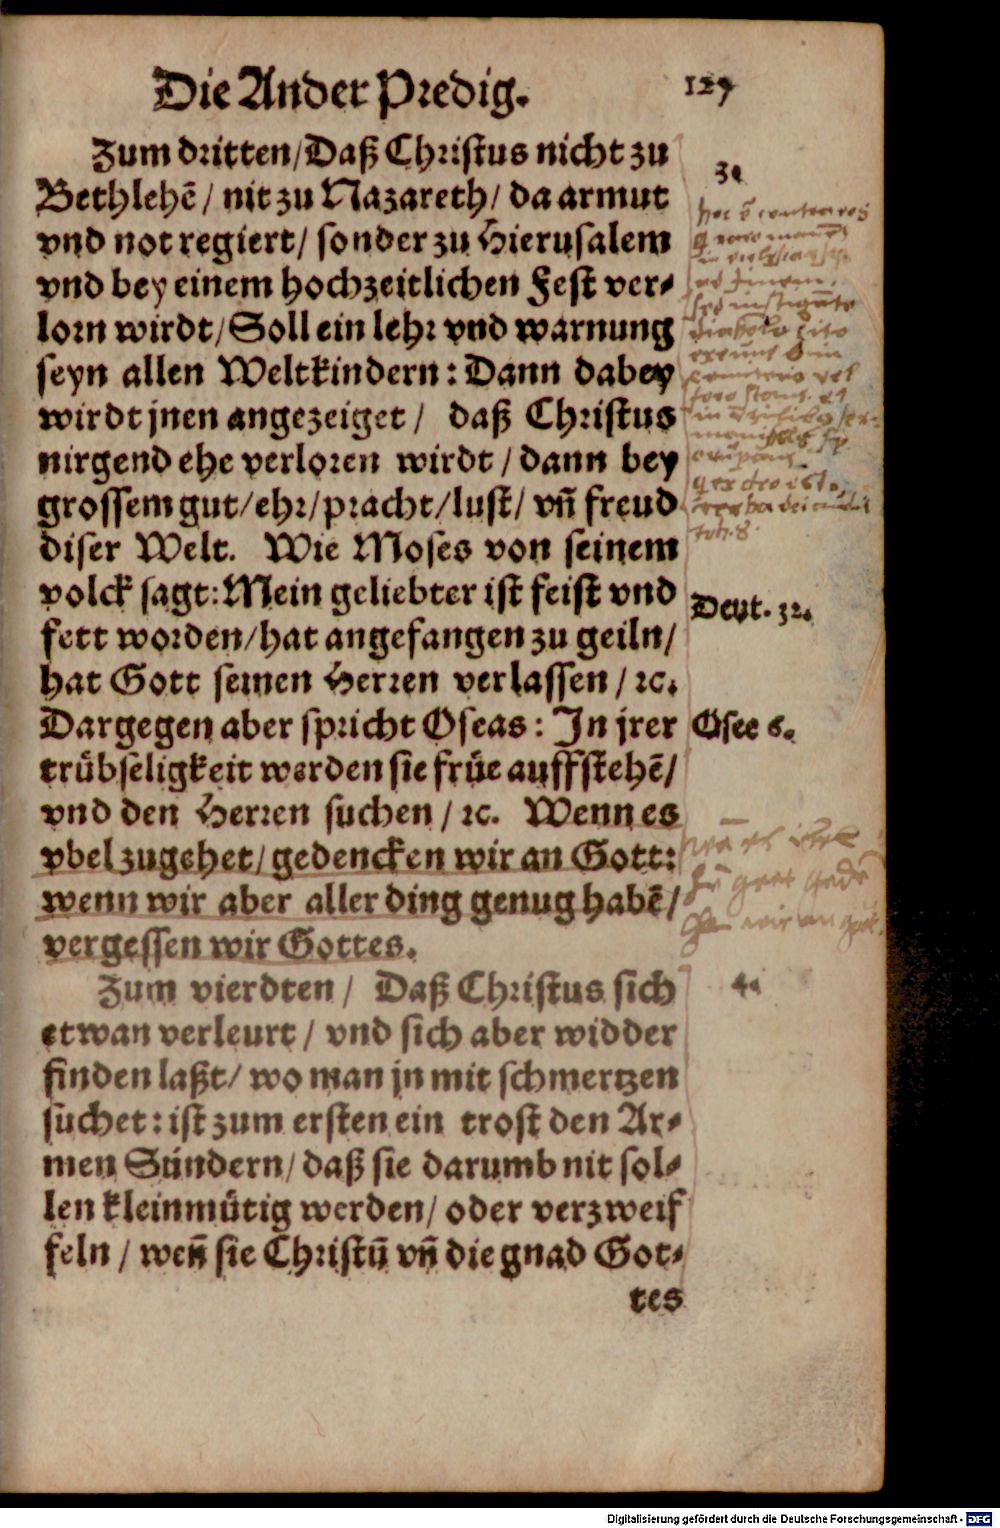 Die Ander Predig. 127
Zum dritten/Daß Christus nicht zu
3.
Bethlehẽ/ nit zu Nazareth/ da armut
vnd not regiert/ sonder zu Hierusalem
vnd bey einem hochzeitlichen Fest ver-
lorn wirdt/Soll ein lehr vnd warnung
seyn allen Weltkindern: Dann dabey
wirdt jnen angezeiget/ daß Christus
nirgend ehe verloren wirdt/dann bey
grossem gut/ehr/pracht/lust/ vñ freud
diser Welt. Wie Moses von seinem
volck sagt:Mein geliebter ist feist vnd
Deut. 32.
fett worden/hat angefangen zu geiln/
hat Gott seinen Herren verlassen/ ꝛc.
Dargegen aber spricht Oseas: In jrer
Osee 6.
trübseligkeit werden sie früe auffstehẽ/
vnd den Herren suchen/ ꝛc. Wenn es
vbel zugehet/ gedencken wir an Gott:
wenn wir aber aller ding genug habẽ/
vergessen wir Gottes.
Zum vierdten/ Daß Christus sich
4.
etwan verleurt/ vnd sich aber widder
finden laßt/ wo man jn mit schmertzen
suchet: ist zum ersten ein trost den Ar-
men Sündern/ daß sie darumb nit sol-
len kleinmütig werden/ oder verzweif
feln/ weñ sie Christũ vñ die gnad Got-
tes
Digitalisierung gefördert durch die Deutsche Forschungsgemeinschaft - DFG